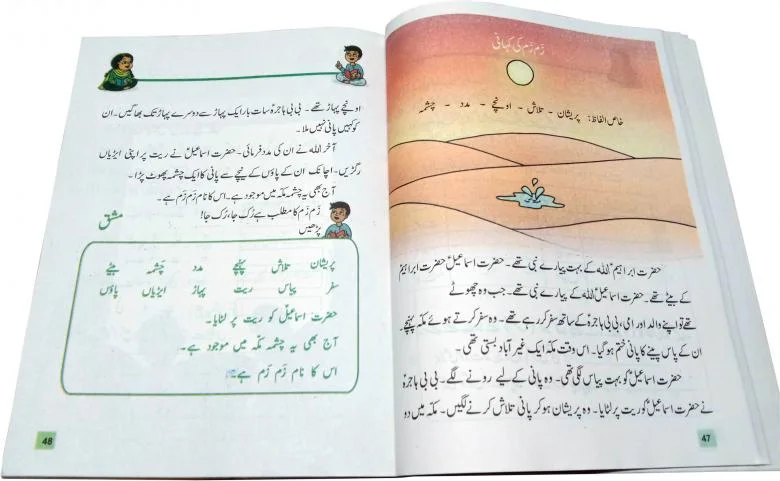 زم زم کی کہانی
خاص الفاظ: پریشان - تلاش - اونچے - مدد - چشمہ
حضرت ابراہیمؑ اللہ کے بہت پیارے نبی تھے۔ حضرت اسماعیلؑ حضرت ابراہیمؑ
کے بیٹے تھے۔ حضرت اسماعیلؑ اللہ کے پیارے نبی تھے۔ جب وہ چھوٹے
تھے تو اپنے والد اور امی، بی بی ہاجرہؑ کے ساتھ سفر کر رہے تھے۔ وہ سفر کرتے ہوئے مکہ پہنچے۔
ان کے پاس پینے کا پانی ختم ہو گیا۔ اس وقت مکہ ایک غیر آباد بستی تھی۔
حضرت اسماعیلؑ کو بہت پیاس لگی تھی۔ وہ پانی کے لیے رونے لگے۔ بی بی ہاجرہؑ
نے حضرت اسماعیلؑ کو ریت پر لٹایا۔ وہ پریشان ہو کر پانی تلاش کرنے لگیں۔ مکہ میں دو
47
اونچے پہاڑ تھے۔ بی بی ہاجرہؑ سات بار ایک پہاڑ سے دوسرے پہاڑ تک بھاگیں۔ ان
کو کہیں پانی نہیں ملا۔
آخر اللہ نے ان کی مدد فرمائی۔ حضرت اسماعیلؑ نے ریت پر اپنی ایڑیاں
رگڑیں۔ اچانک ان کے پاؤں کے نیچے سے پانی کا ایک چشمہ پھوٹ پڑا۔
آج بھی یہ چشمہ مکہ میں موجود ہے۔ اس کا نام زم زم ہے۔
زم زم کا مطلب ہے رُک جا، رُک جا!
مشق
پڑھیں
پریشان تلاش پہنچے مدد چشمہ بیٹے
سفر پیاس ریت پہاڑ ایڑیاں پاؤں
حضرت اسماعیلؑ کو ریت پر لٹایا۔
آج بھی یہ چشمہ مکہ میں موجود ہے۔
اس کا نام زم زم ہے۔
48